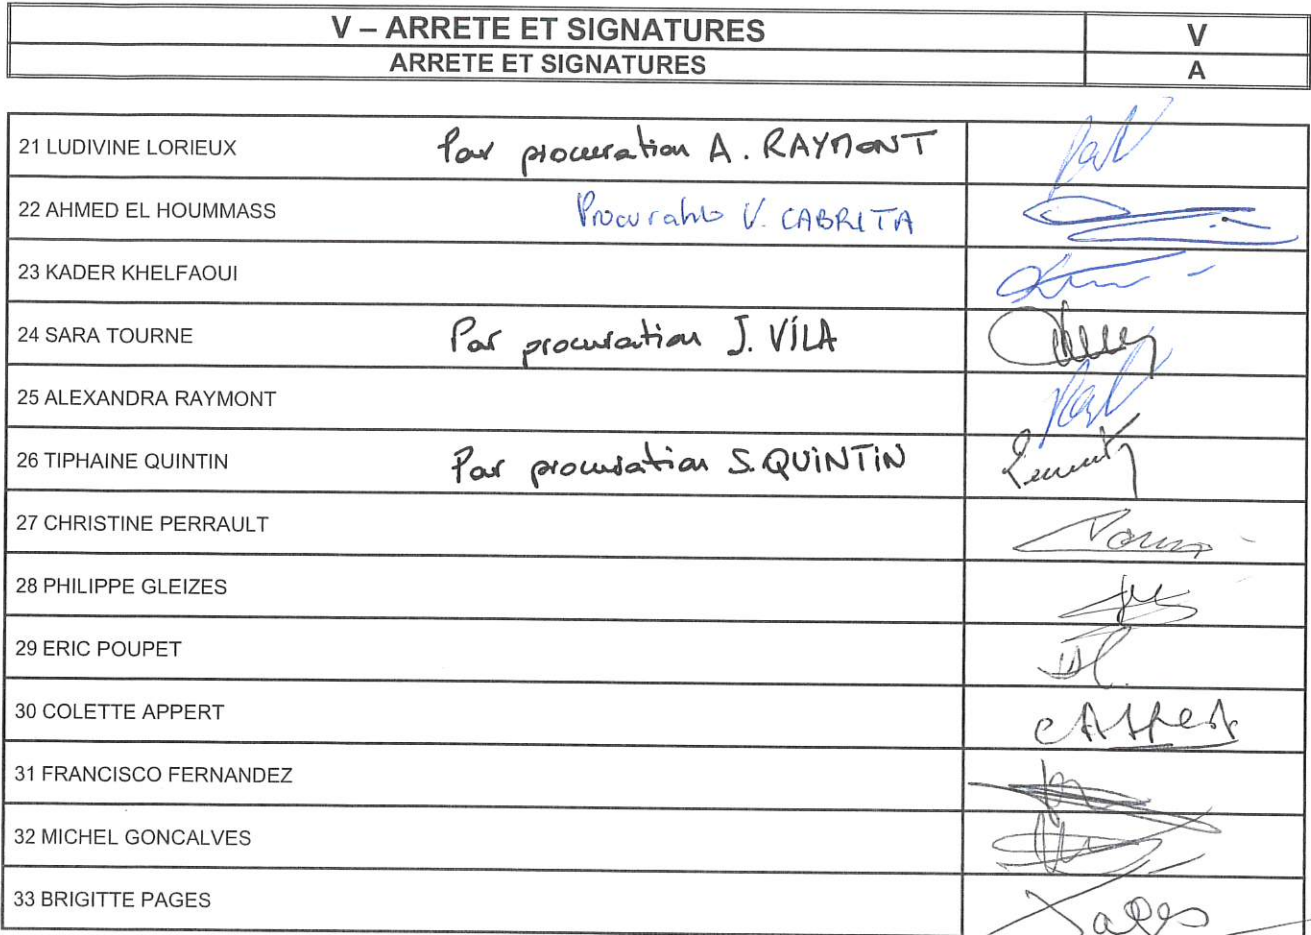 V – ARRETE ET SIGNATURES V
ARRETE ET SIGNATURES A
21 LUDIVINE LORIEUX Par procuration A. RAYMONT
22 AHMED EL HOUMMASS Procuration V. CABRITA
23 KADER KHELFAOUI
24 SARA TOURNE Par procuration J. VÍLA
25 ALEXANDRA RAYMONT
26 TIPHAINE QUINTIN Par procuration S. QUINTIN
27 CHRISTINE PERRAULT
28 PHILIPPE GLEIZES
29 ERIC POUPET
30 COLETTE APPERT
31 FRANCISCO FERNANDEZ
32 MICHEL GONCALVES
33 BRIGITTE PAGES